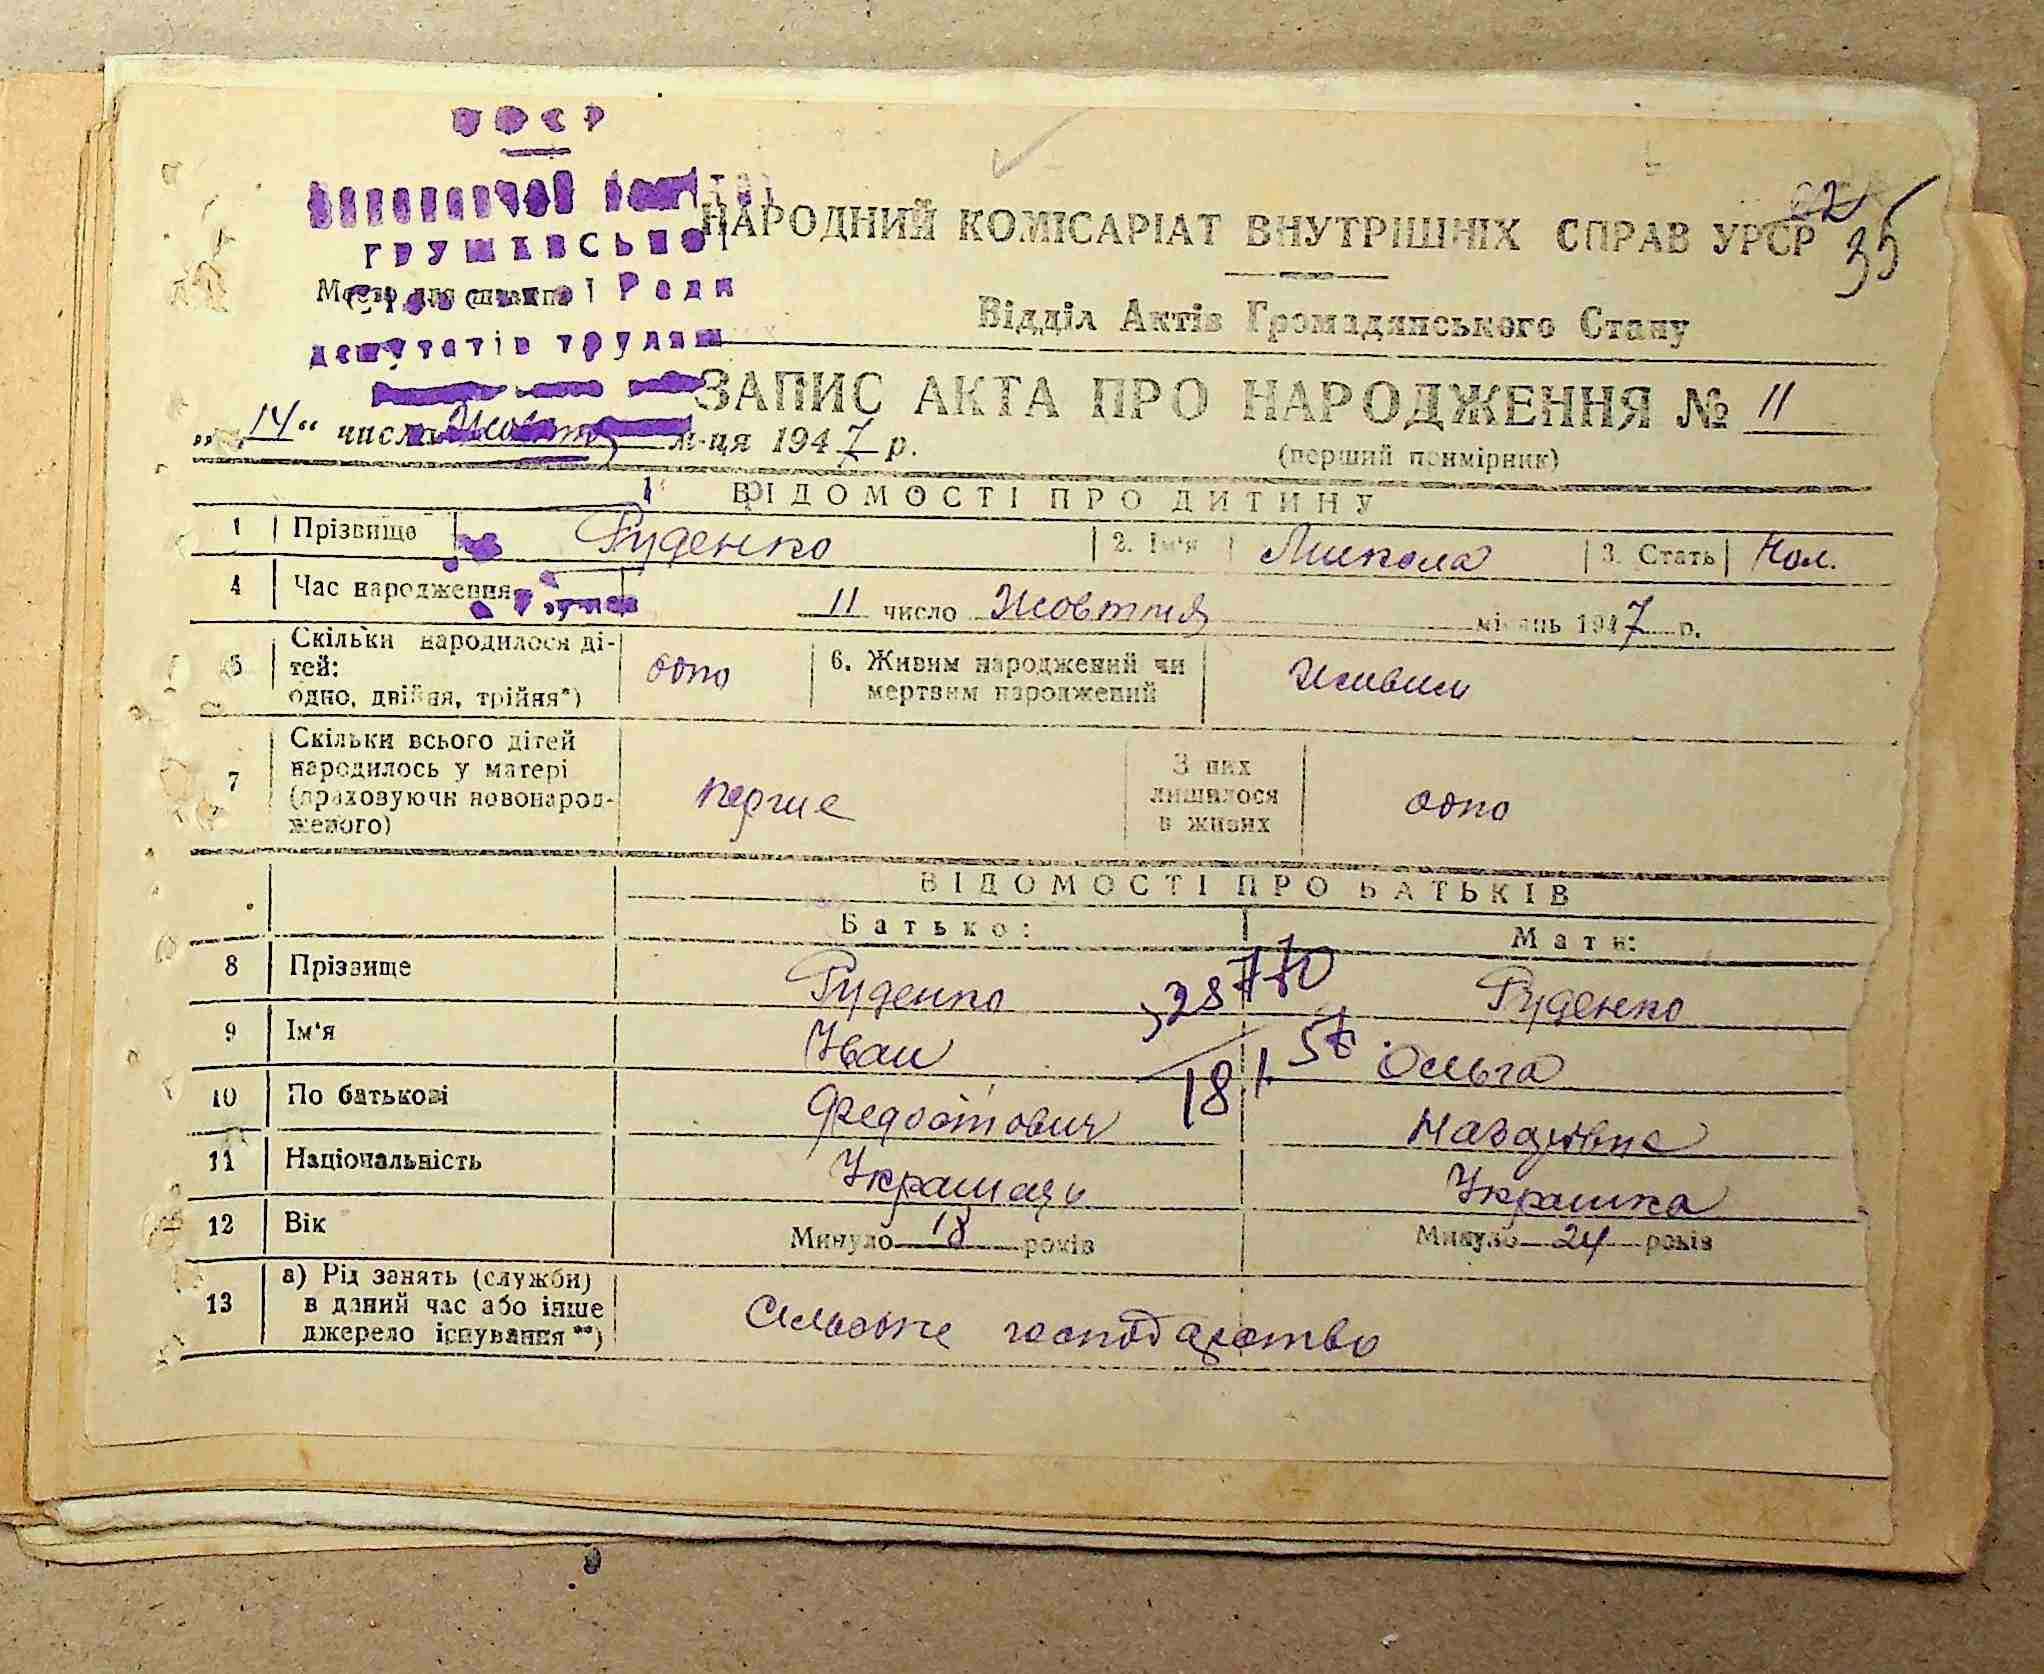 УРСР
Грушківсько
Місце для штампа
Сільської Ради
депутатів трудящ
НАРОДНИЙ КОМІСАРІАТ ВНУТРІШНІХ СПРАВ УРСР
35
Відділ Актів Громадянського Стану
ЗАПИС АКТА ПРО НАРОДЖЕННЯ № 11
„14“ числа Жовтня м-ця 1947 р.
(перший примірник)
ВІДОМОСТІ ПРО ДИТИНУ
1 Прізвище Руденко 2. Ім'я Микола 3. Стать Чол.
4 Час народження 11 число Жовтня місяць 1947 р.
5 Скільки народилося ді-
тей:
одно, двійня, трійня*)
одно
6. Живим народжений чи
мертвим народжений
Живим
7 Скільки всього дітей
народилось у матері
(враховуючи новонарод-
женого)
перше
З них
лишилося
в живих
одно
ВІДОМОСТІ ПРО БАТЬКІВ
Батько: Мати:
8 Прізвище Руденко Руденко
9 Ім'я Іван Ольга
10 По батькові Федотович
11 Національність Українець Українка
12 Вік Минуло 18 років Минуло 24 років
13 а) Рід занять (служби)
в даний час або інше
джерело існування**)
Сільське господарство